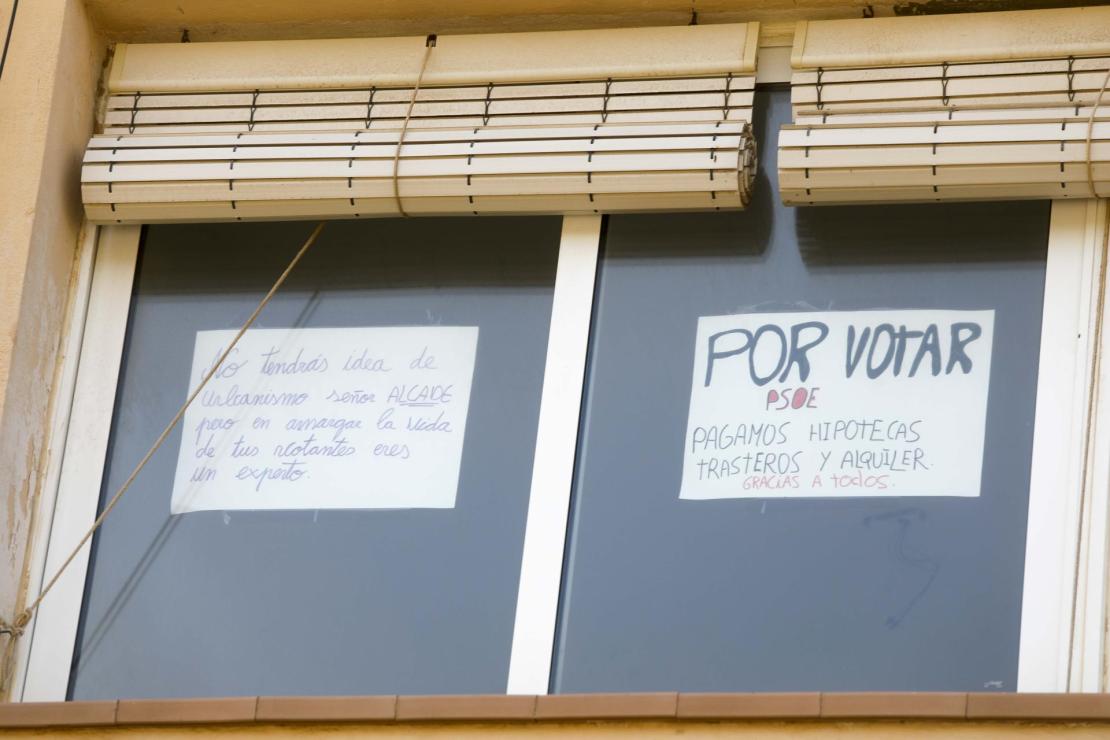 No tendrás idea de
urbanismo señor ALCAIDE
pero en amargar la vida
de tus votantes eres
un experto.
POR VOTAR
PSOE
PAGAMOS HIPOTECAS
TRASTEROS Y ALQUILER.
GRACIAS A todos.